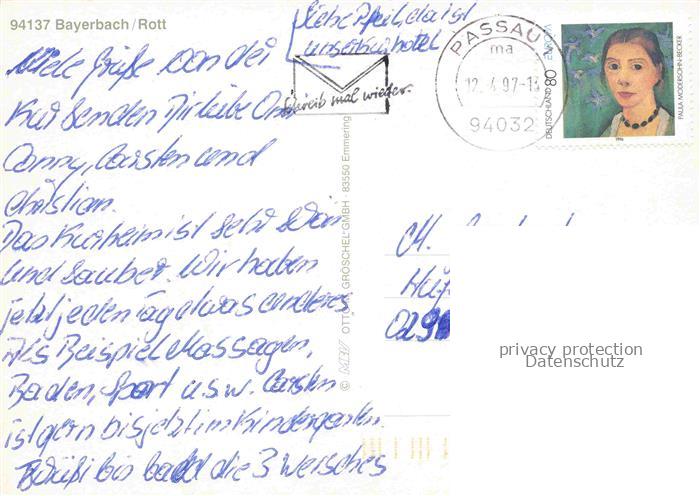 94137 Bayerbach / Rott
liebe Pfeil, da ist
unser Kurhotel
Viele Grüße von der
Kur senden Dir liebe Oma
Conny, Carsten und
Christian.
Das Kurheim ist sehr schön
und sauber. Wir haben
jetzt jeden Tag etwas anderes
Als Beispiel Massagen,
Baden, Sport u.s.w. Carsten
ist gern bis jetzt im Kindergarten.
Tschüß bis bald die 3
Schreib mal wieder.
PASSAU
ma
12.4.97-1
94032
DEUTSCHLAND 80 EUROPA
PAULA MODERSOHN-BECKER
1996
© OTTO GRÖSCHEL GMBH · 83550 Emmering
privacy protection
Datenschutz